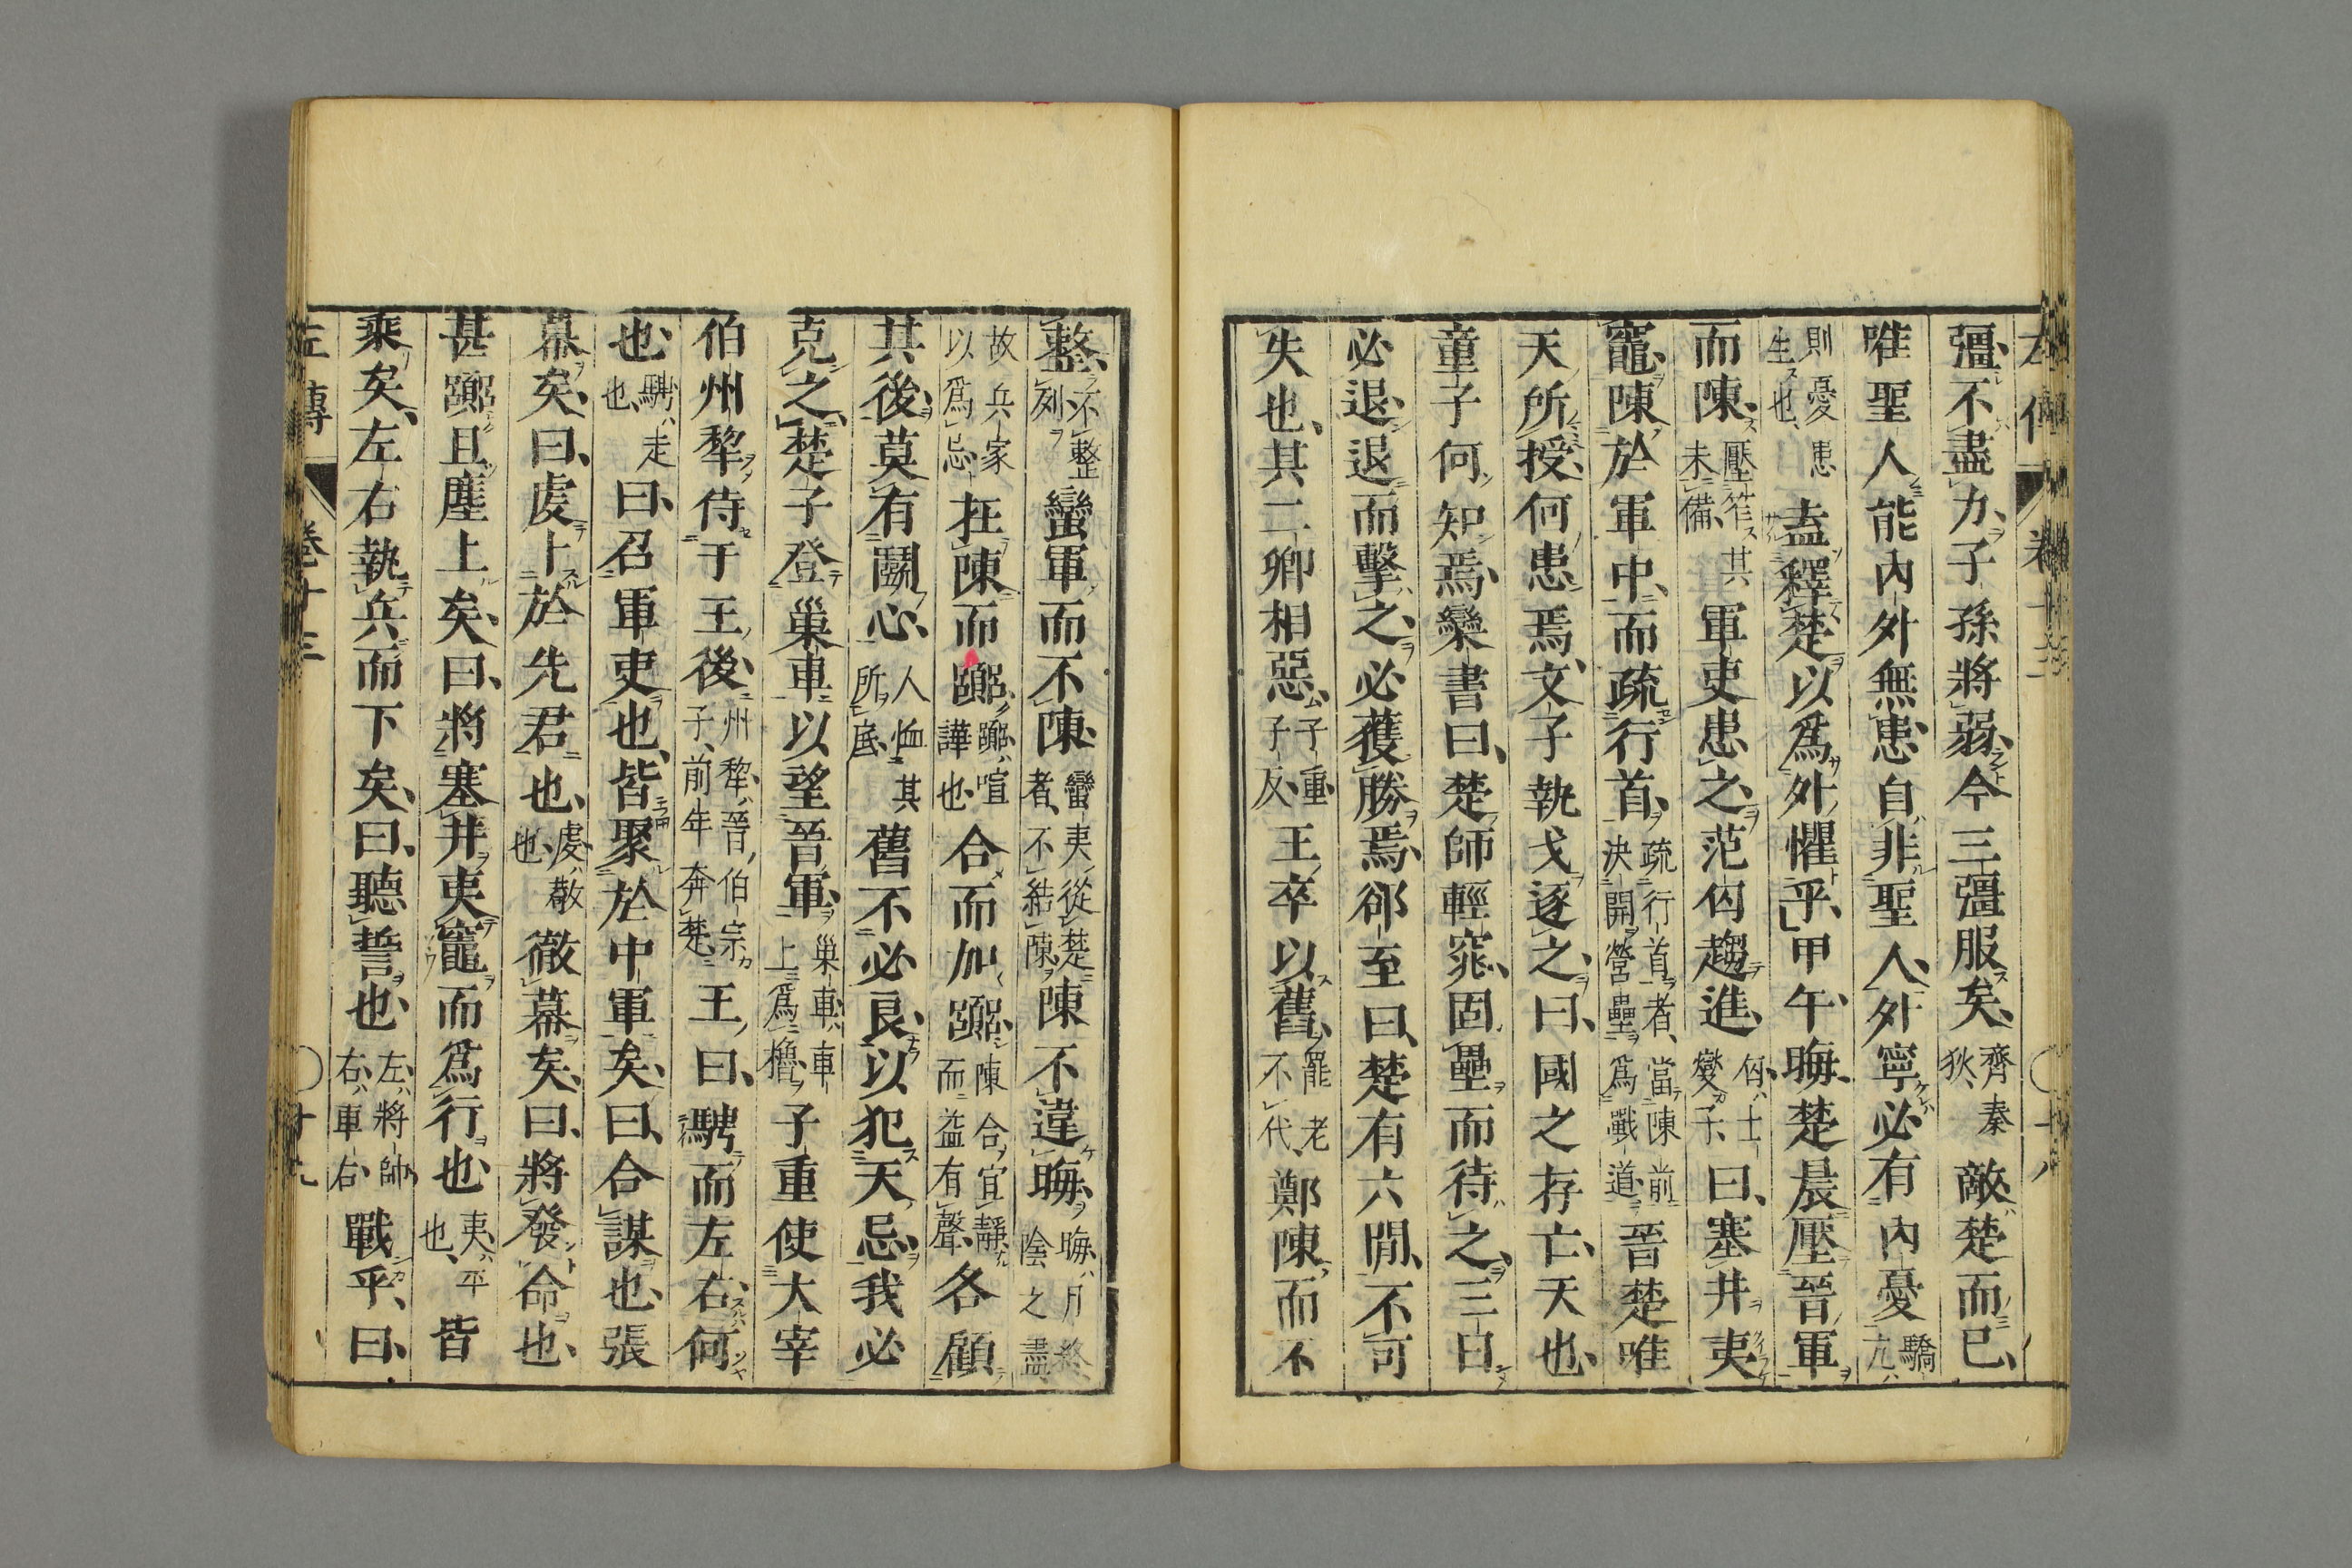 彊不盡力子孫將弱今三彊服矣齊秦狄敵楚而已
唯聖人能內外無患自非聖人外寧必有內憂驕亢
則憂患生也盍釋楚以爲外懼乎甲午晦楚晨壓晉軍
而陳壓笮其未備軍吏患之范匄趨進匄士燮子曰塞井夷
竈陳於軍中而疏行首疏行首者當陳前決開營壘爲戰道晉楚唯
天所授何患焉文子執戈逐之曰國之存亡天也
童子何知焉欒書曰楚師輕窕固壘而待之三日
必退退而擊之必獲勝焉郤至曰楚有六閒不可
失也其二卿相惡子重子反王卒以舊罷老不代鄭陳而不
整不整列蠻軍而不陳蠻夷從楚者不結陳陳不違晦晦月終陰之盡
故兵家以爲忌在陳而嚻嚻喧譁也合而加嚻陳合宜靜而益有聲各顧
其後莫有鬭心人恤其所底舊不必良以犯天忌我必
克之楚子登巢車以望晉軍巢車車上爲櫓子重使大宰
伯州犂侍于王後州犂晉伯宗子前年奔楚王曰騁而左右何
也騁走也曰召軍吏也皆聚於中軍矣曰合謀也張
幕矣曰虔卜於先君也虔敬也徹幕矣曰將發命也
甚嚻且塵上矣曰將塞井夷竈而爲行也夷平也皆
乘矣左右執兵而下矣曰聽誓也左將帥右車右戰乎曰
左傳 卷十三 十九